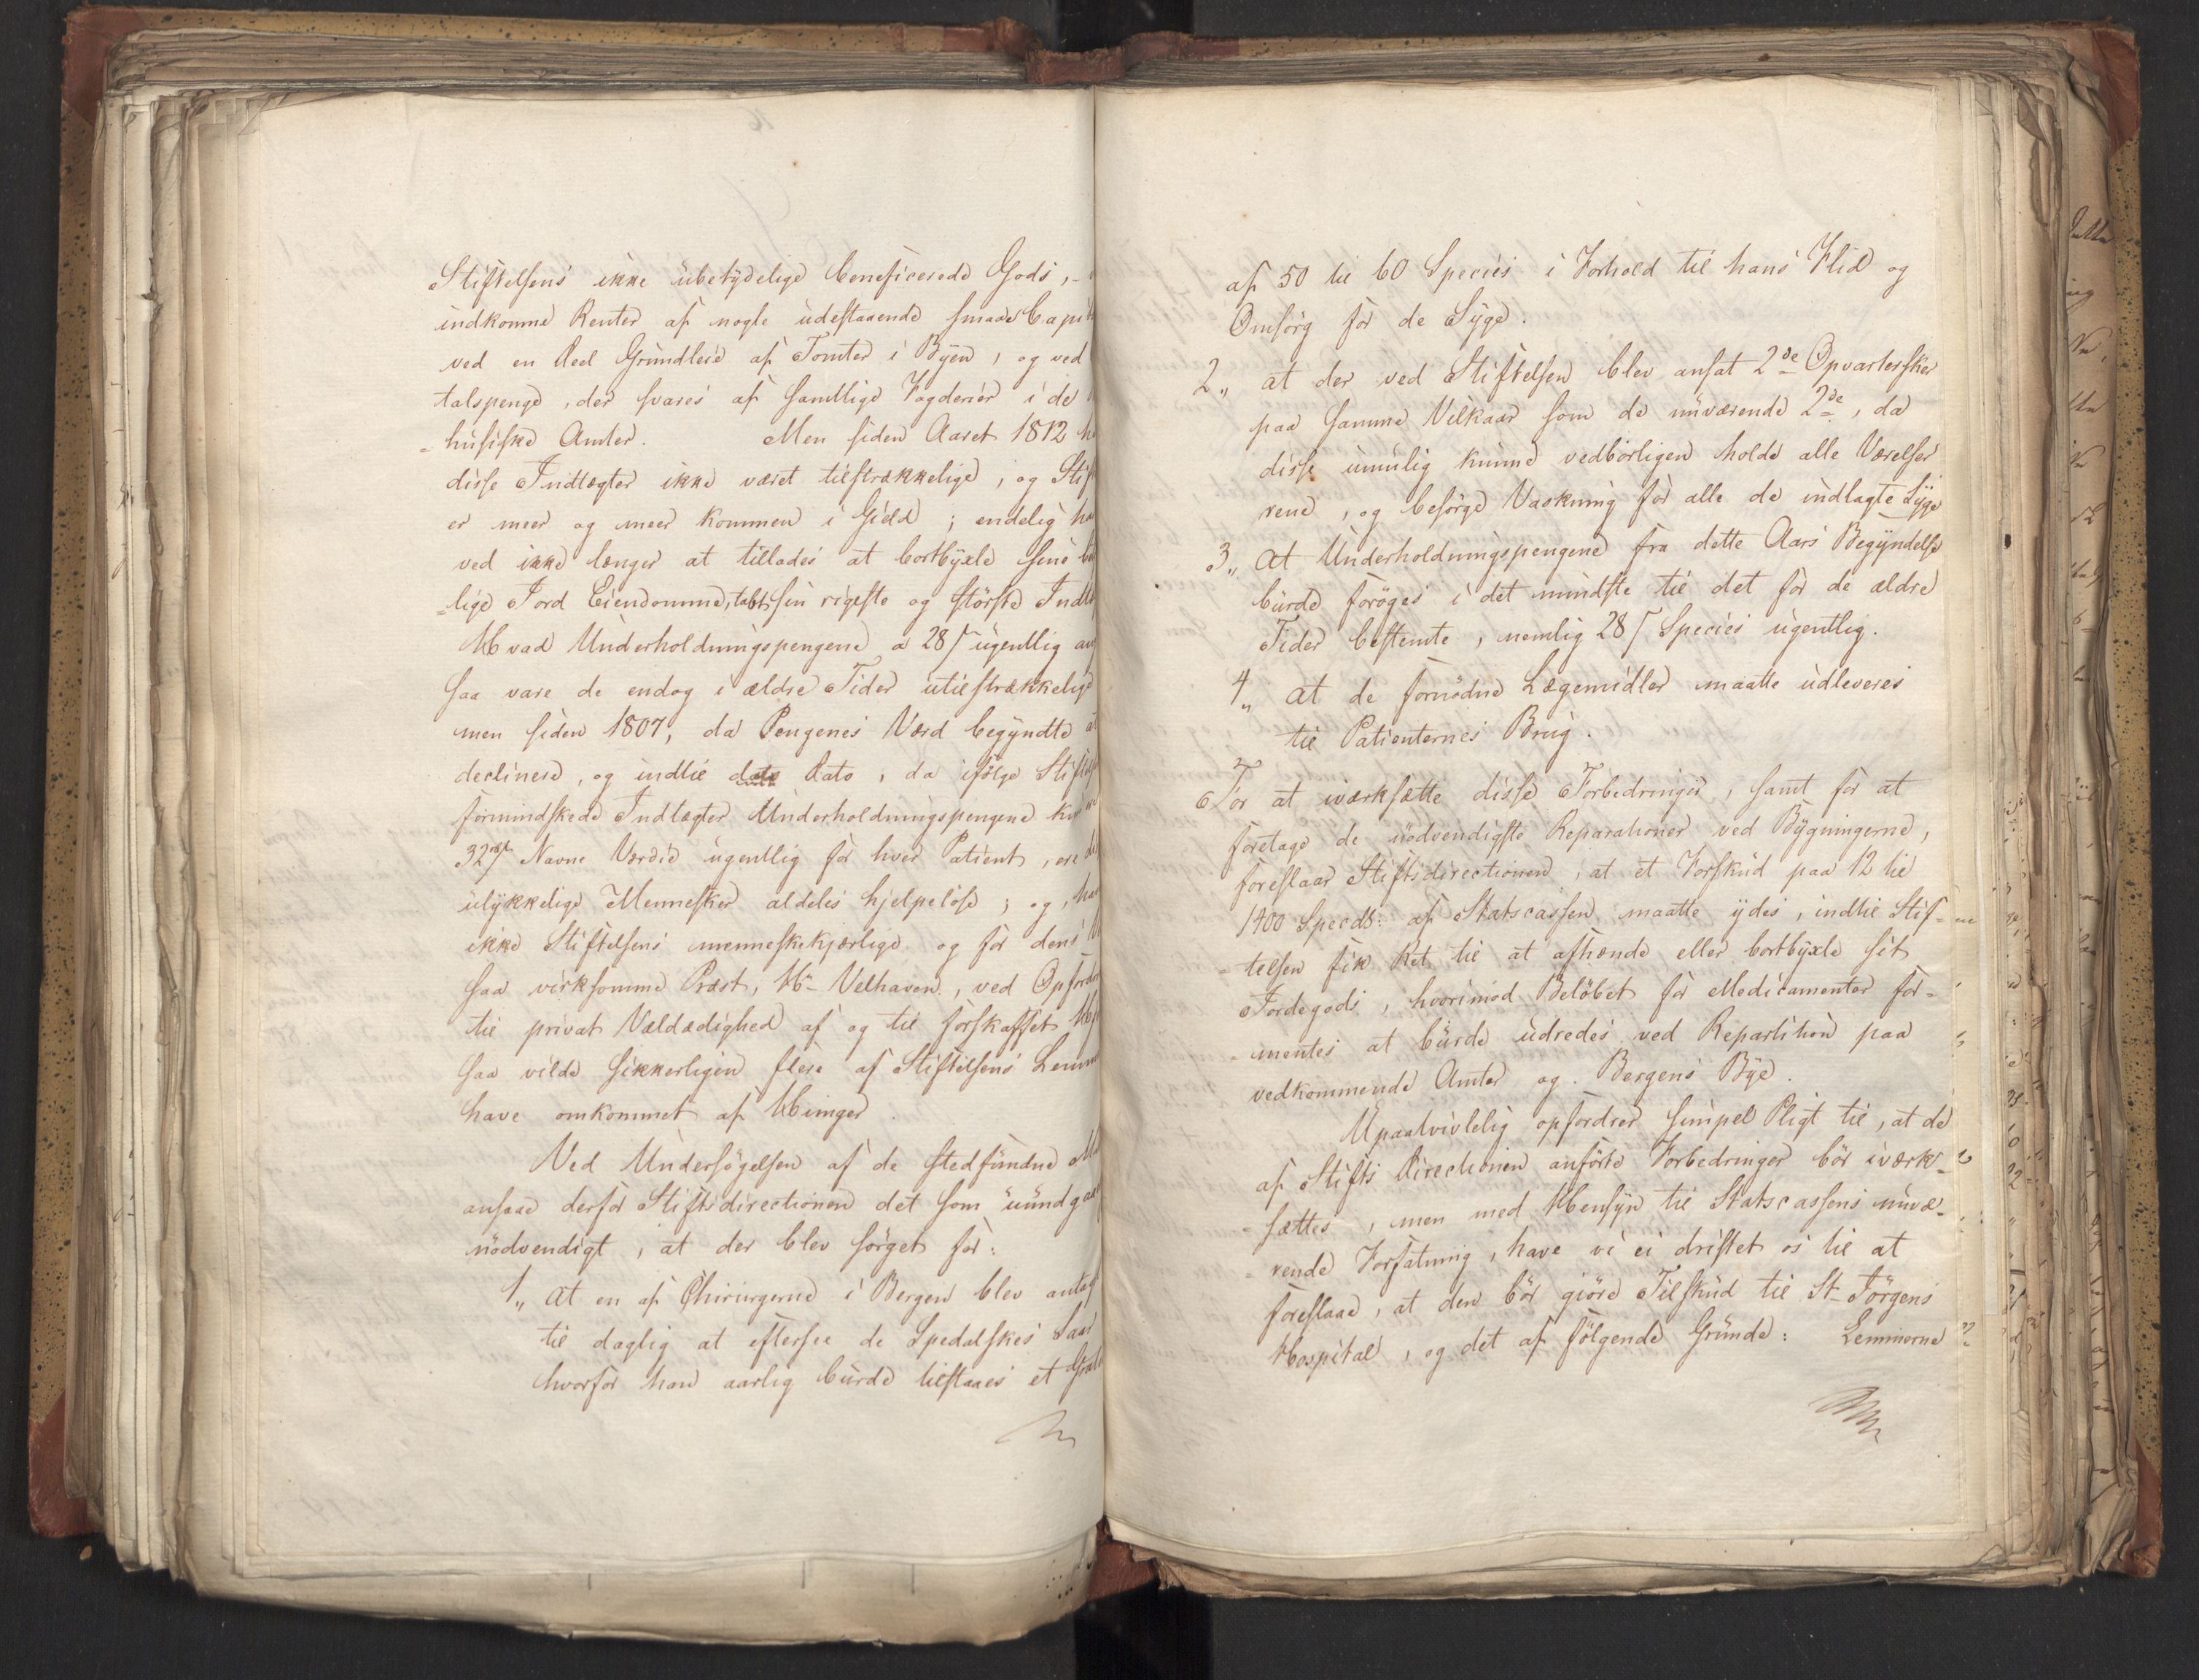 Stiftelsens ikke ubetydelige beneficerede Gods, -
indkomne Renter af nogle udestaaende smaae Capit
ved en Deel Grundleie af Tomter i Byen, og ved
talspenge, der svares af samtlige Fogderier i de
=husiske Amter. Men siden Aaret 1812 ha
disse Indtægter ikke været tilstrækkelige, og Stif
er meer og meer kommen i Gield; endelig ha
ved ikke længer at tillades at bortbyxle sine be
=lige Jord Eiendomme, tabt sin rigeste og största Indtæ
Hvad Underholdningspengene a 28 ſ ugentlig an
saa vare de endog i ældre Tider utilstrækkelige
men siden 1807, da Pengenes Værd begyndte at
declinere, og indtil dato, da ifölge Stiftels
formindskede Indtægter Underholdningspengene kun
32 ſ Navne Værdie ugentlig for hver Patient, ere de
ulykkelige Mennesker aldeles hjelpelöse; og, hav
ikke Stiftelsens menneskekjærlige og for dens
saa virksomme Præst, Hr Velhaven, ved Opfordr
til privat Vældædighed af og til forskaffet Hj
saa vilde sikkerligen flere af Stiftelsens Lemm
have omkommet af Hunger.
Ved Undersögelsen af de stedfundne
ansaae derfor Stiftsdirectionen det som uundgaae
nödvendigt, at der blev sörget for:
1,, at en af Chirurgerne i Bergen blev antag
til daglig at eftersee de Spedalskes Saar
hvorfor han aarlig burde tilstaaes et Grat
af 50 til 60 Species i Forhold til hans Flid og
Omsorg for de Syge.
2,, at der ved Stiftelsen blev ansat 2de Opvartersker
paa samme Vilkaar som de nuværende 2de, da
disse umulig kunne vedbörligen holde alle Værelser
rene, og besörge Vaskning for alle de indlagte Syge
3,, at Underholdningspengene fra dette Aars Begyndelse
burde foröges i det mindste til det for de ældre
Tider bestemte, nemlig 28 ſ Species ugentlig.
4,, at de fornödne Lægemidler maatte udleveres
til Patienternes Brug.
For at iværksætte disse Forbedringer, samt for at
foretage de nödvendigste Reparationer ved Bygningerne,
foreslaar Stiftsdirectionen, at et Forskud paa 12 til
1400 Specdlr: af Statscassen maatte ydes, indtil Stif=
=telsen fik Ret til at afhænde eller bortbyxle sit
Jordegods, hvorimod Belöbet for Medicamenter for=
=mentes at burde udredes ved Repartition paa
vedkommende Amter og Bergens Bye.
Upaatvivlelig opfordrer simpel Pligt til, at de
af Stifts Directionen anförte Forbedringer bör iværk=
=sættes, men med Hensyn til Statscassens nuvæ=
=rende Forfatning, have vi ei dristet os til at
foreslaae, at den bör giöre Tilskud til St Jörgens
Hospital, og det af fölgende Grunde: Lemmerne